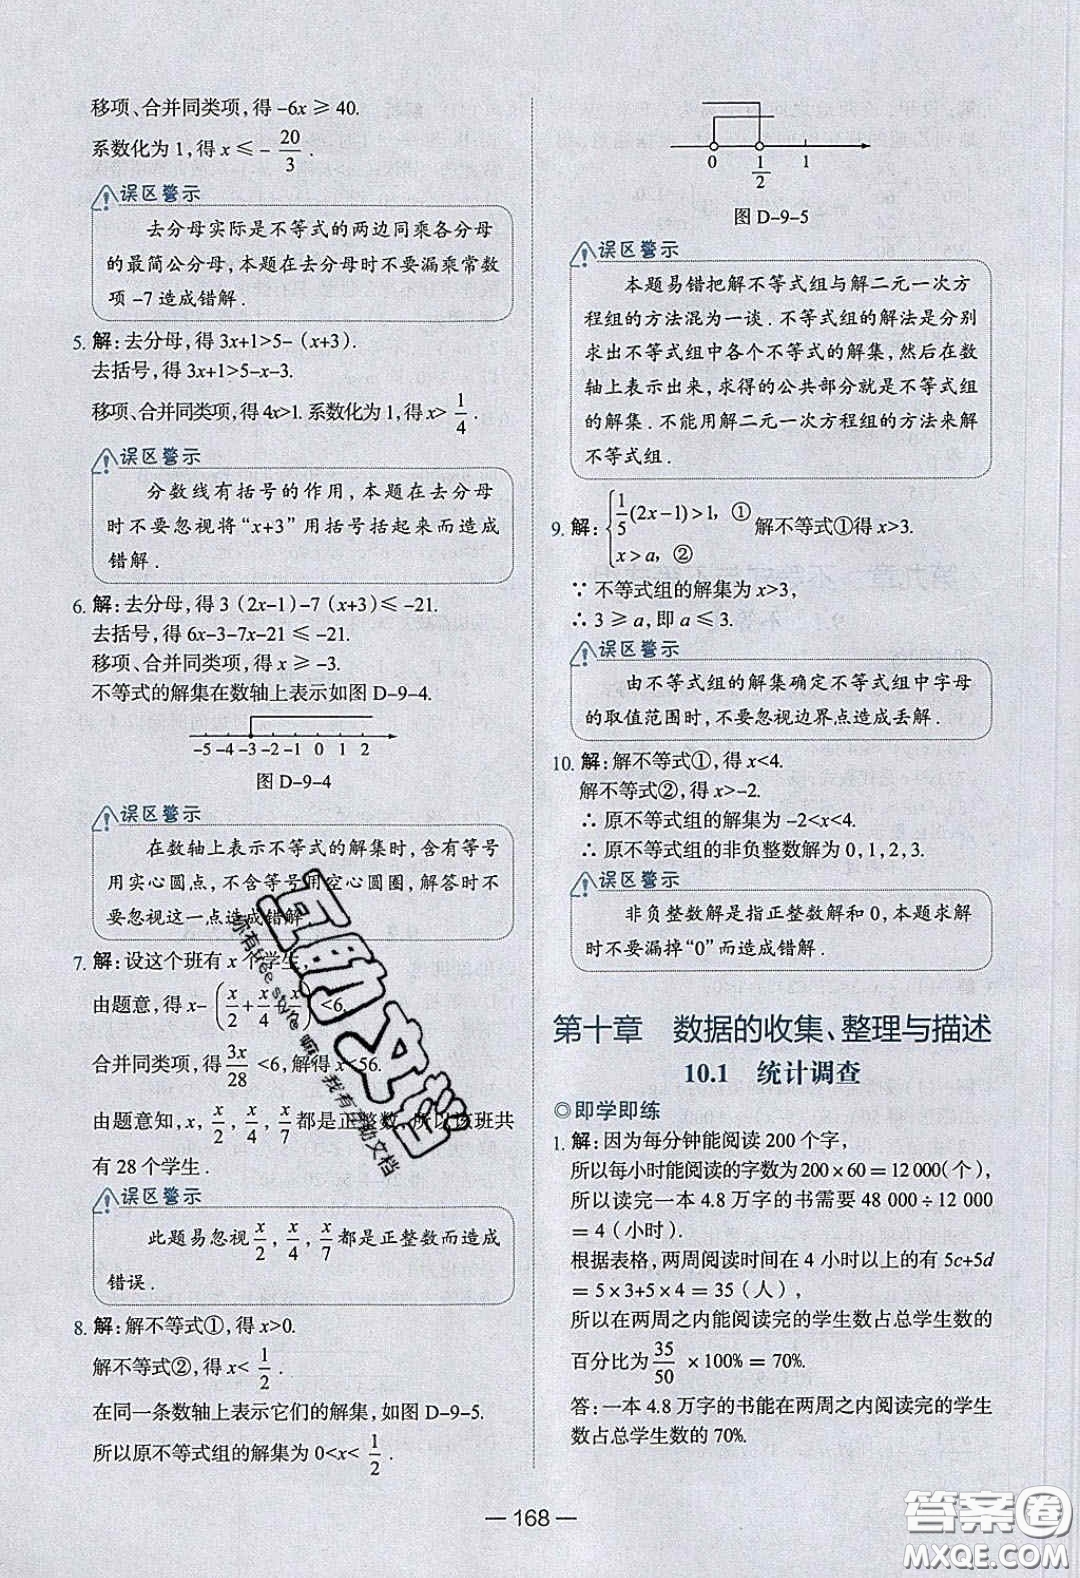 移项、合并同类项，得 –6x ≥ 40.
系数化为 1，得 x ≤ – 20/3 .
误区警示
去分母实际是不等式的两边同乘各分母
的最简公分母，本题在去分母时不要漏乘常数
项 –7 造成错解 .
5. 解：去分母，得 3x+1>5–（x+3）.
去括号，得 3x+1>5–x–3.
移项、合并同类项，得 4x>1. 系数化为 1，得 x> 1/4 .
误区警示
分数线有括号的作用，本题在去分母
时不要忽视将“x+3”用括号括起来而造成
错解 .
6. 解：去分母，得 3（2x–1）–7（x+3）≤ –21.
去括号，得 6x–3–7x–21 ≤ –21.
移项、合并同类项，得 x ≥ –3.
不等式的解集在数轴上表示如图 D–9–4.
–5 –4 –3 –2 –1 0 1 2
图 D–9–4
误区警示
在数轴上表示不等式的解集时，含有等号
用实心圆点，不含等号用空心圆圈，解答时不
要忽视这一点造成错解
7. 解：设这个班有 x 个学生，
由题意，得 x–（x/2+x/4+x/7）<6，
合并同类项，得 3x/28 <6，解得 x<56.
由题意知，x，x/2，x/4，x/7 都是正整数，所以该班共
有 28 个学生 .
误区警示
此题易忽视 x/2，x/4，x/7 都是正整数而造成
错误 .
8. 解：解不等式①，得 x>0.
解不等式②，得 x< 1/2 .
在同一条数轴上表示它们的解集，如图 D–9–5.
所以原不等式组的解集为 0<x< 1/2 .
0 1/2 1
图 D–9–5
误区警示
本题易错把解不等式组与解二元一次方
程组的方法混为一谈 . 不等式组的解法是分别
求出不等式组中各个不等式的解集，然后在数
轴上表示出来，求得的公共部分就是不等式组
的解集 . 不能用解二元一次方程组的方法来解
不等式组 .
9. 解：{1/5(2x–1)>1，① x>a，② 解不等式①得 x>3.
∵ 不等式组的解集为 x>3，
∴ 3 ≥ a，即 a ≤ 3.
误区警示
由不等式组的解集确定不等式组中字母
的取值范围时，不要忽视边界点造成丢解 .
10. 解：解不等式①，得 x<4.
解不等式②，得 x>–2.
∴ 原不等式组的解集为 –2<x<4.
∴ 原不等式组的非负整数解为 0，1，2，3.
误区警示
非负整数解是指正整数解和 0，本题求解
时不要漏掉“0”而造成错解 .
第十章 数据的收集、整理与描述
10.1 统计调查
◎即学即练
1. 解：因为每分钟能阅读 200 个字，
所以每小时能阅读的字数为 200 × 60 = 12 000（个），
所以读完一本 4.8 万字的书需要 48 000 ÷ 12 000
= 4（小时）.
根据表格，两周阅读时间在 4 小时以上的有 5c+5d
= 5 × 3+5 × 4 = 35（人），
所以在两周之内能阅读完的学生数占总学生数的
百分比为 35/50 × 100% = 70%.
答：一本 4.8 万字的书能在两周之内阅读完的学生
数占总学生数的 70%.
— 168 —
互助文档
你有free style嘛
我有互助文档
答案圈
MXQE.COM